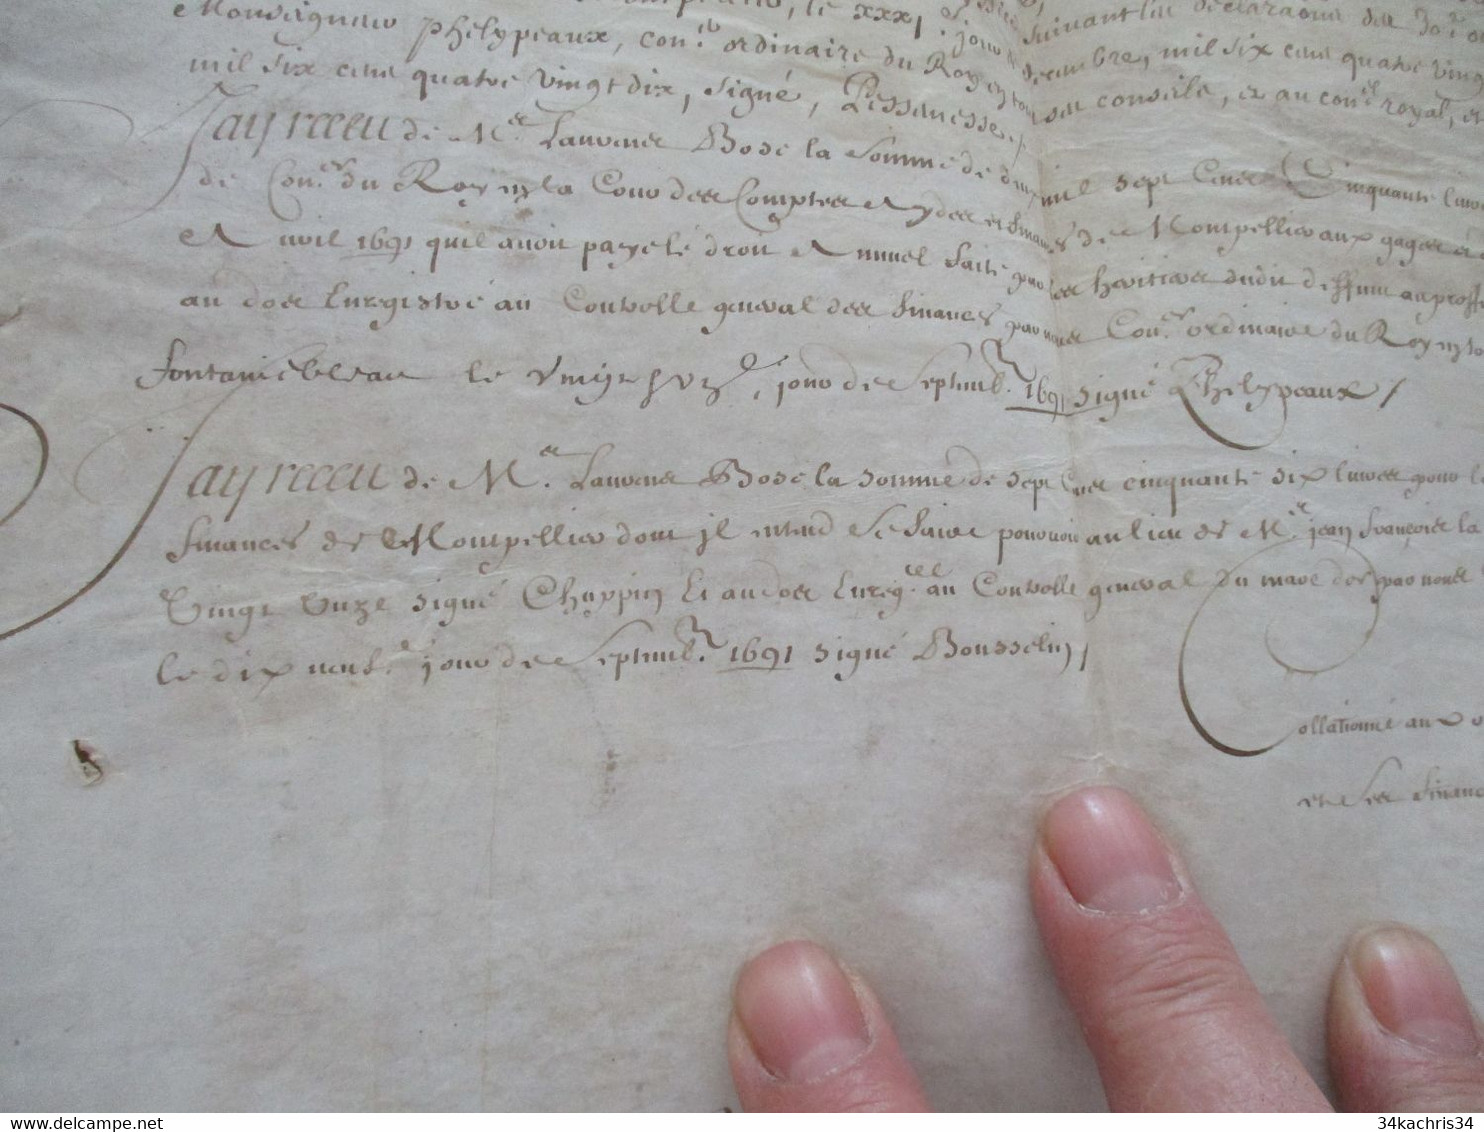 le xxxj. jour suivant la declaraõn du
Monseigneur Phelypeaux, con.er ordinaire du Roy en tous decembre, mil six cens quatre vingt
mil six cens quatre vingt dix, signé, Lessenesse / sea conseils, et au con.el royal, et
Jay receu de M.re Laurens Bosc la somme de deux mil sept Cens Cinquante livres
de Con.er du Roy en la Cour des Comptes Aydes et finances de Montpellier aux gages
Avril 1691 quil avoit payé le droit Annuel faite par les heritiers dudit deffunt au proffit
au dos Enregistré au Controlle general des finances par nous Con.er ordinaire du Roy en
fontainebleau le Vingt jour de Septemb.r 1691 signé Phelypeaux /
Jay receu de M.e Laurens Bosc la somme de sept Cens cinquante six livres pour le
finances de Montpellier dont jl entend se faire pourvoir au lieu de M.e jean françois la
Vingt Unze signé Chuppin Et au dos Enreg.é au Controlle general du marc dor par nous
le dix neuf.e jour de Septemb.r 1691 signé Bousselin /
Collationné aux
et de ses financ
34kachris34